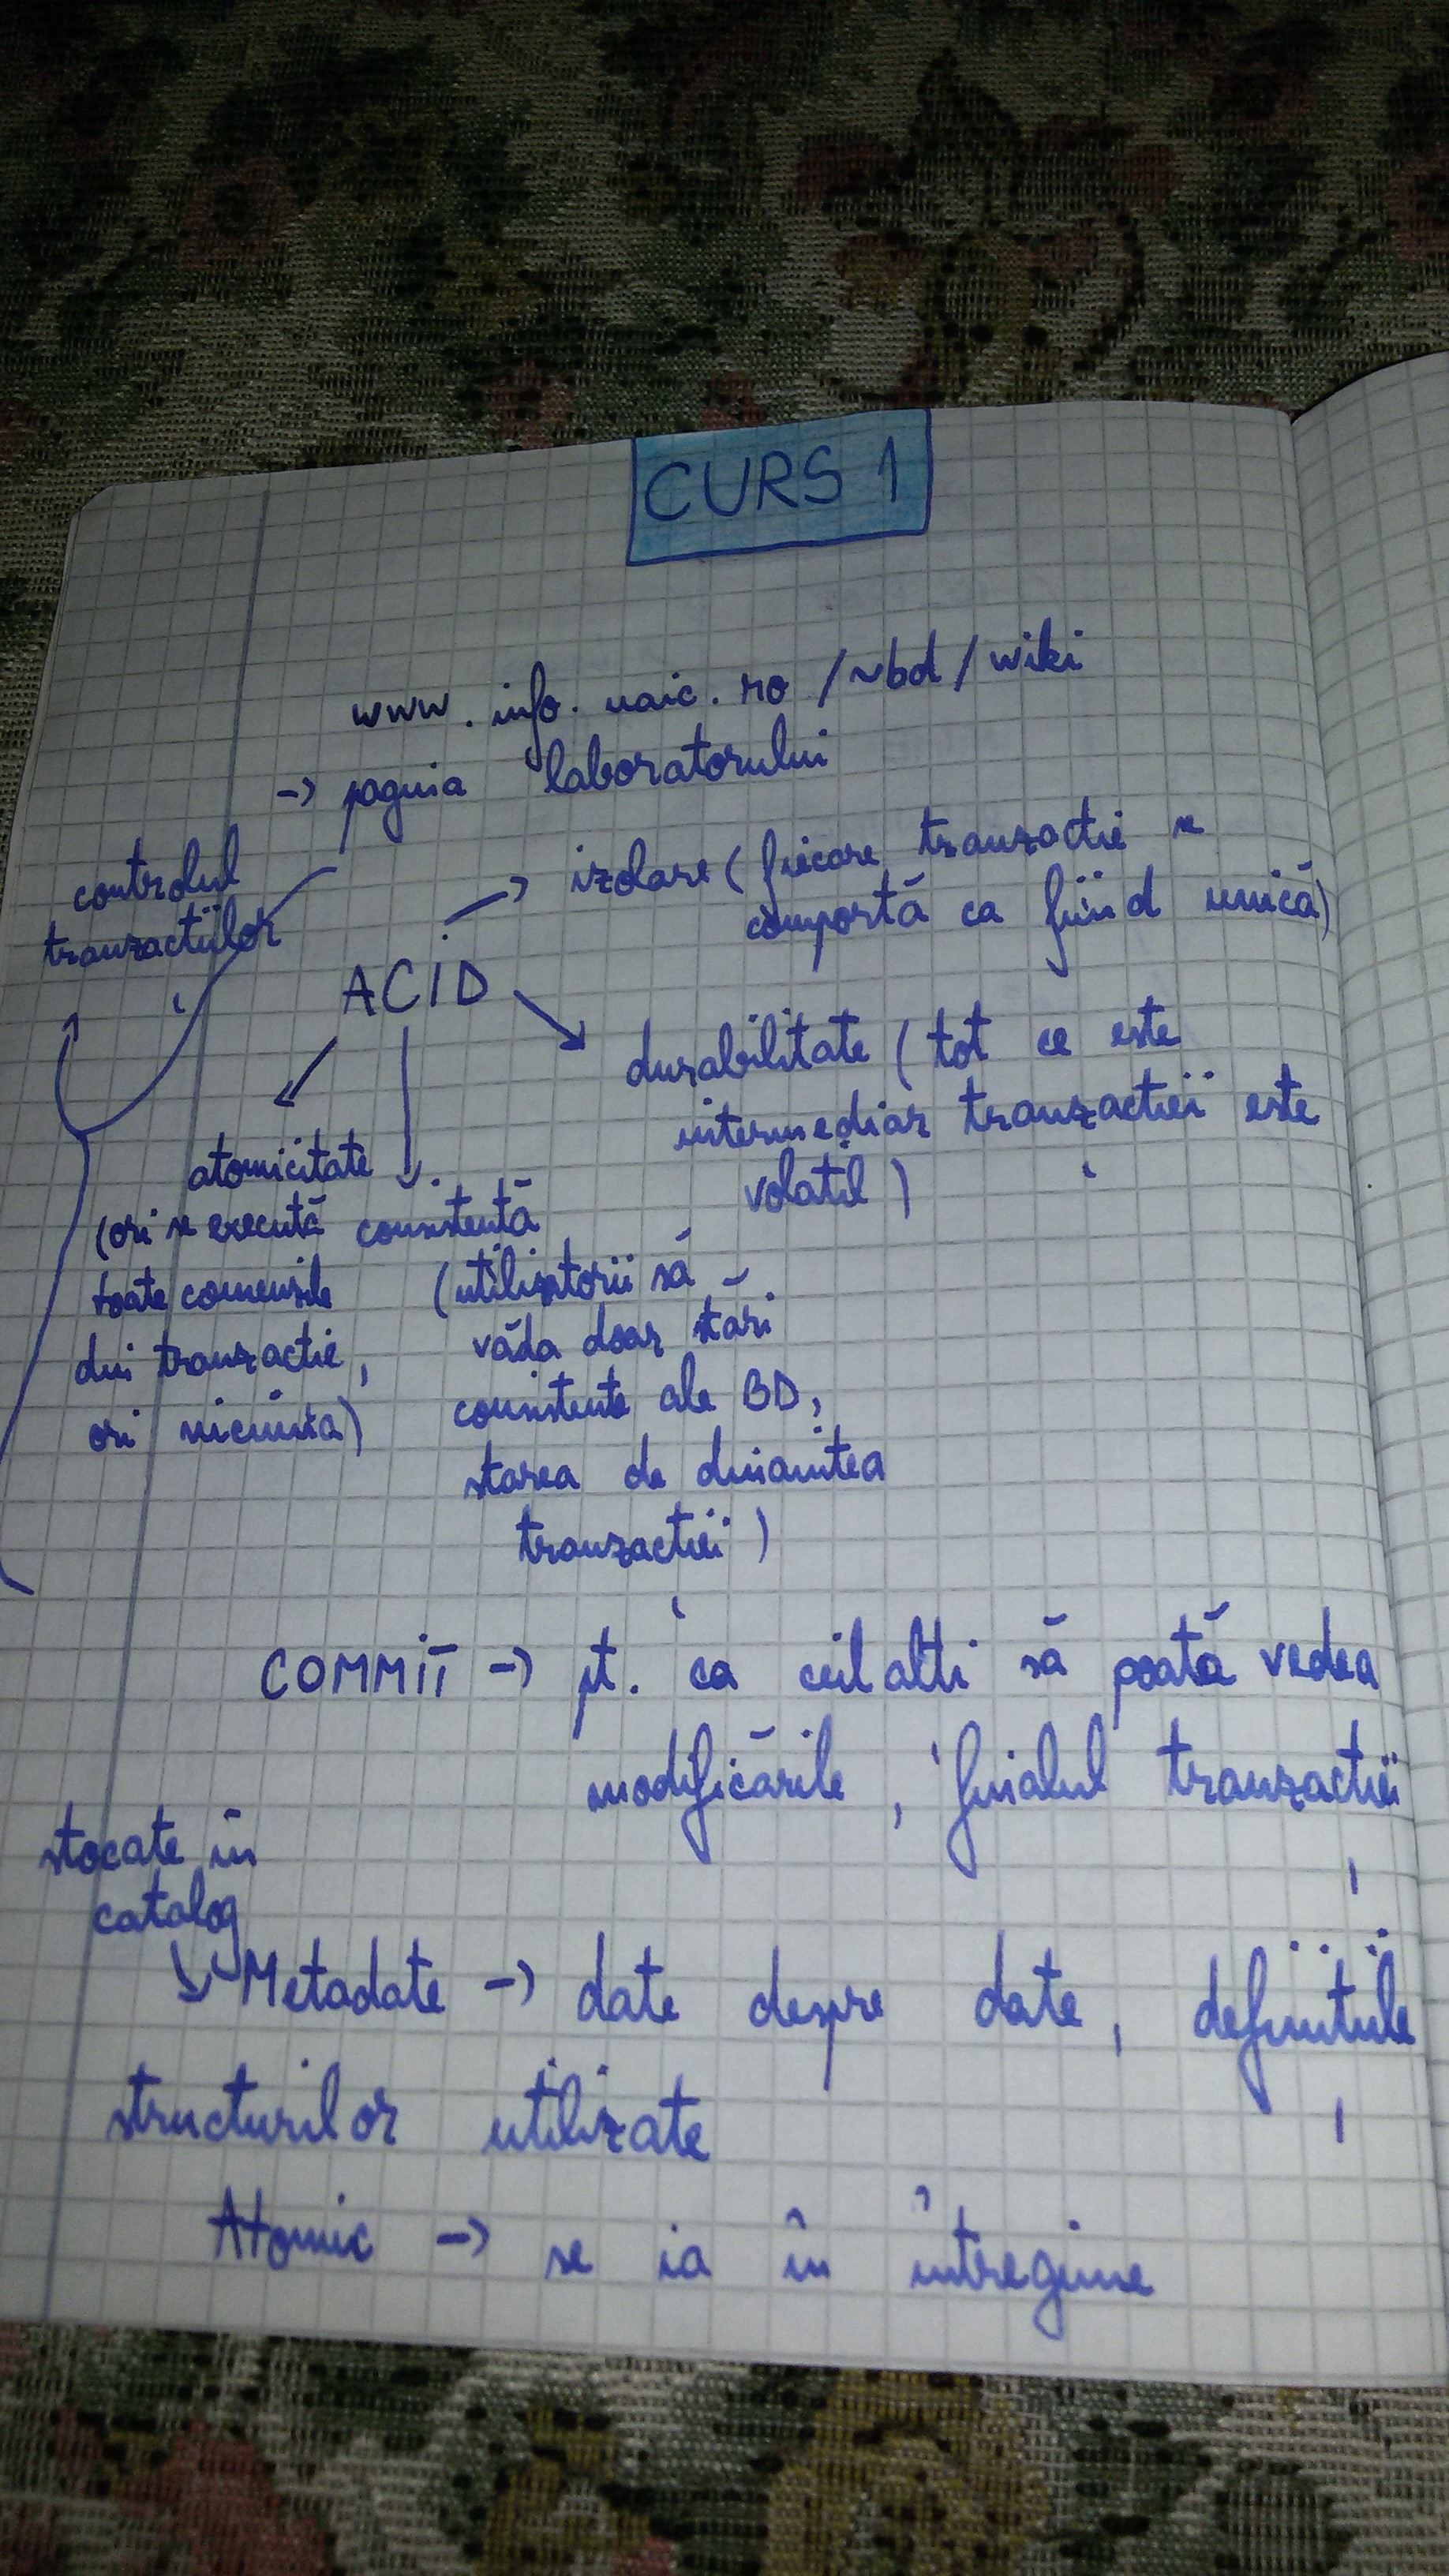 CURS 1
www.info.uaic.ro/~bd/wiki
-> pagina laboratorului
controlul
tranzacțiilor
-> izolare (fiecare tranzacție se
comportă ca fiind unică)
ACID
durabilitate (tot ce este
intermediar tranzacției este
volatil)
atomicitate
(ori se execută
toate comenzile
din tranzacție,
ori niciuna)
consistență
(utilizatorii să
vadă doar stări
consistente ale BD,
starea de dinaintea
tranzacției)
COMMIT -> pt. ca ceilalți să poată vedea
modificările, finalul tranzacției
stocate în
catalog
Metadate -> date despre date, definițiile
structurilor utilizate
Atomic -> se ia în întregime